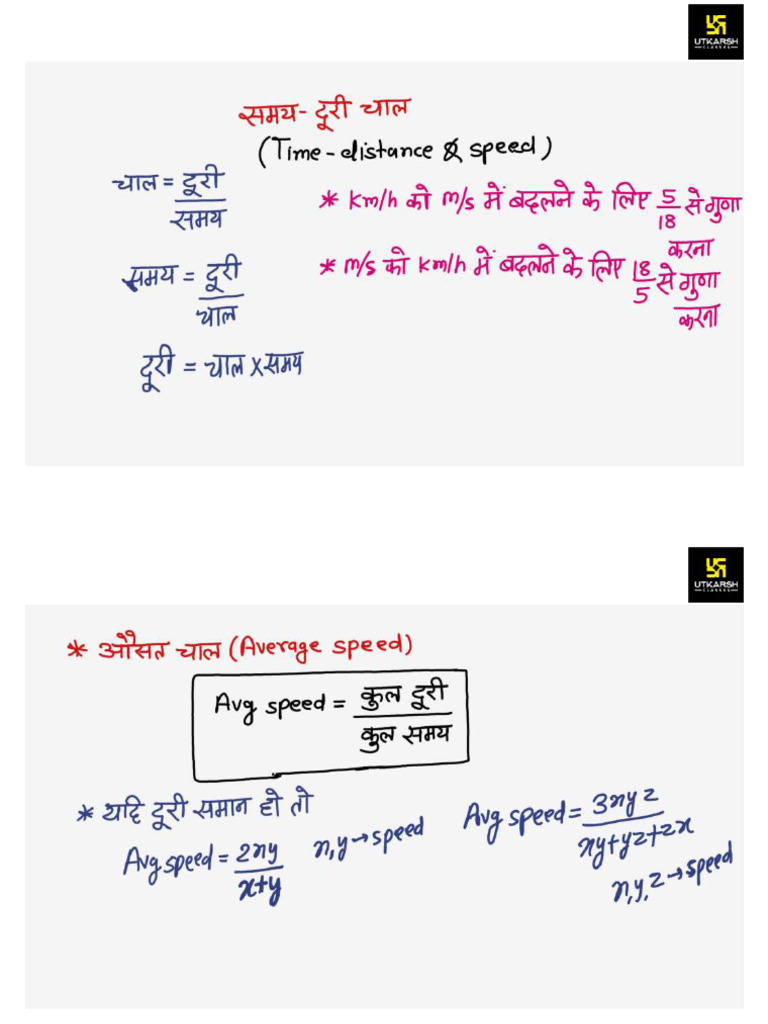 UTKARSH
CLASSES
समय - दूरी चाल
(Time - distance & speed)
चाल = दूरी/समय
* Km/h को m/s में बदलने के लिए 5/18 से गुणा
करना
समय = दूरी/चाल
* m/s को Km/h में बदलने के लिए 18/5 से गुणा
करना
दूरी = चाल x समय
UTKARSH
CLASSES
* औसत चाल (Average speed)
Avg speed = कुल दूरी/कुल समय
* यदि दूरी समान हो तो
Avg speed = 2xy/x+y x, y → speed
Avg speed = 3xyz/xy+yz+zx
x, y, z → speed